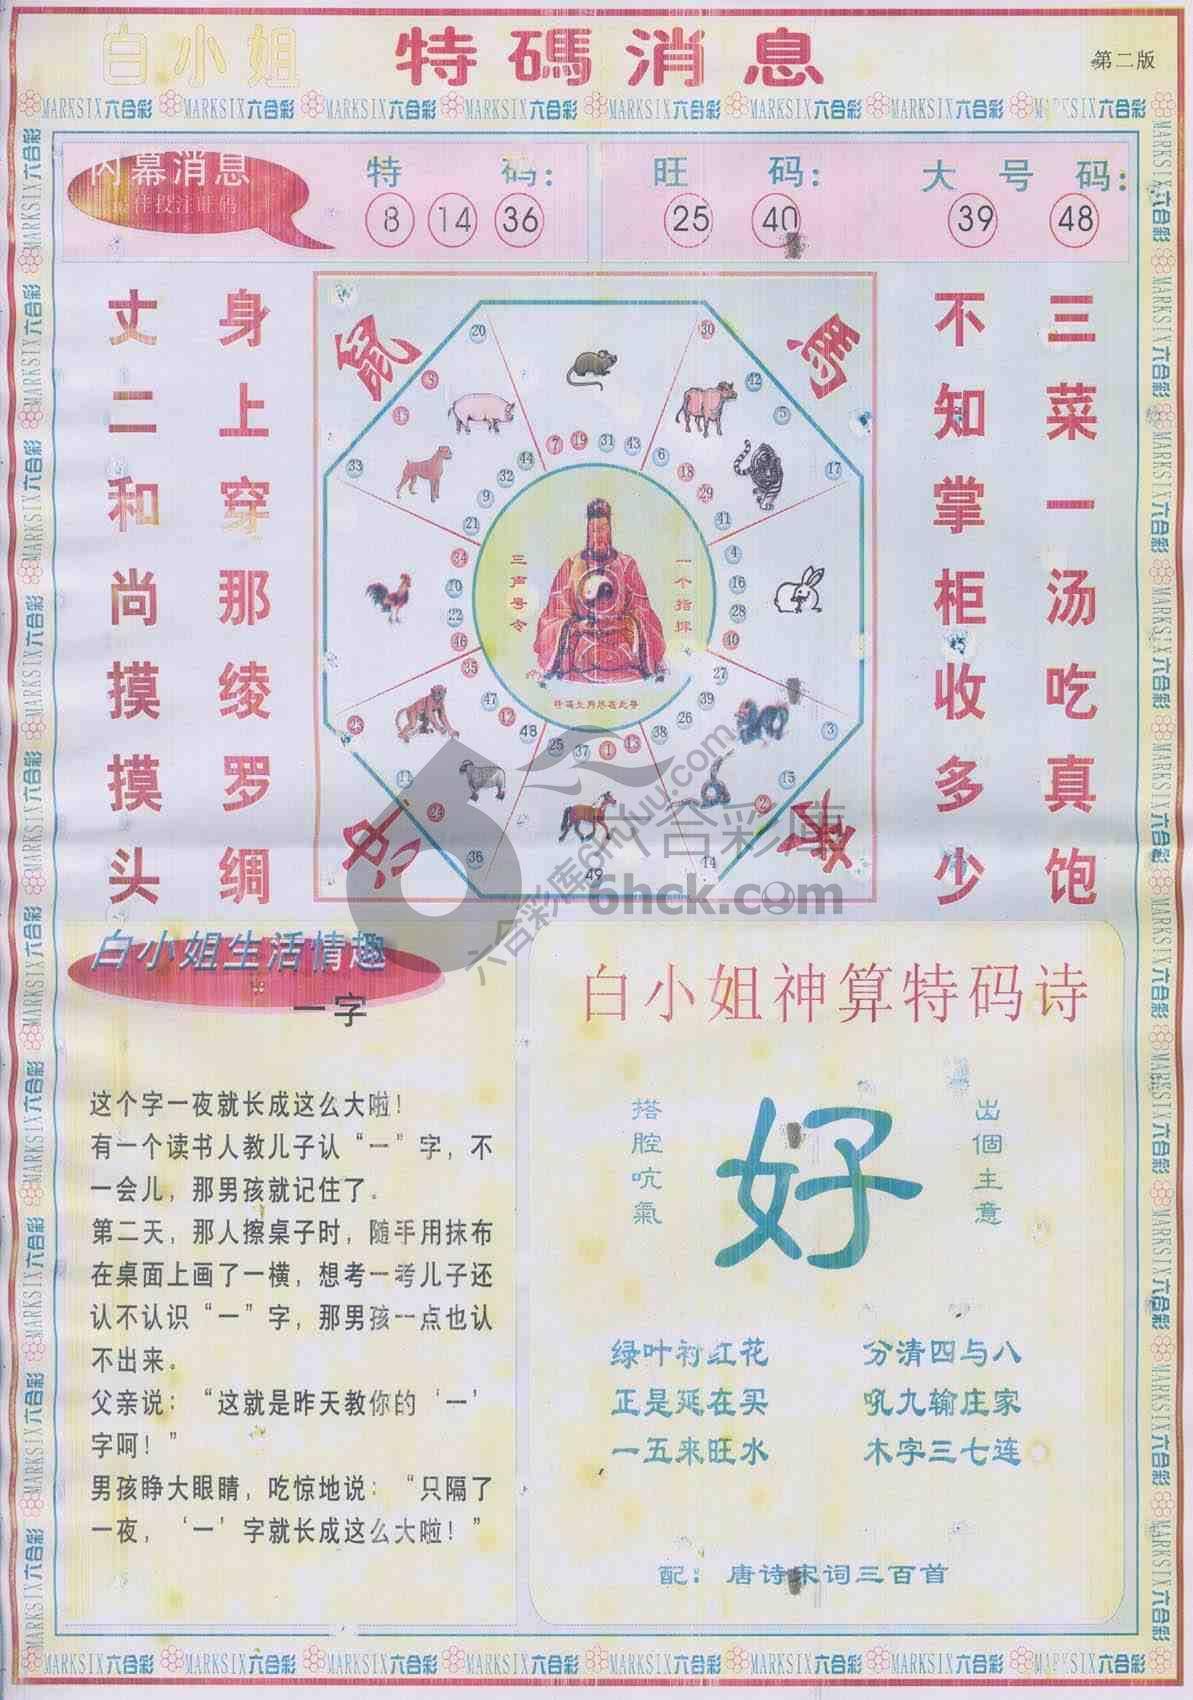 白小姐 特碼消息
第二版
MARKSIX六合彩 MARKSIX六合彩 MARKSIX六合彩 MARKSIX六合彩 MARKSIX六合彩 MARKSIX六合彩 MARKSIX六合彩 MARKSIX六合彩
内幕消息
特码：
8 14 36
旺码：
25 40
大号码：
39 48
三菜一汤吃真饱
不知掌柜收多少
身上穿那绫罗绸
丈二和尚摸摸头
鼠
馬
20
30
42
5
33
17
7 19 31 43
6
18
29
41
44
32
9
21
34
10
22
46
4
16
28
40
35
47
48
27
39
26
38
25 37 1 13
3
15
2
14
11
36
49
一个指挥
三声号令
六合彩库
6hck.com
白小姐生活情趣
一字
这个字一夜就长成这么大啦！
有一个读书人教儿子认“一”字，不
一会儿，那男孩就记住了。
第二天，那人擦桌子时，随手用抹布
在桌面上画了一横，想考一考儿子还
认不认识“一”字，那男孩一点也认
不出来。
父亲说：“这就是昨天教你的‘一’
字呵！”
男孩睁大眼睛，吃惊地说：“只隔了
一夜，‘一’字就长成这么大啦！”
白小姐神算特码诗
出個主意
好
搭腔吭氣
绿叶衬红花 分清四与八
正是延在买 吼九输庄家
一五来旺水 木字三七连
配：唐诗宋词三百首
MARKSIX六合彩 MARKSIX六合彩 MARKSIX六合彩 MARKSIX六合彩 MARKSIX六合彩 MARKSIX六合彩 MARKSIX六合彩 MARKSIX六合彩